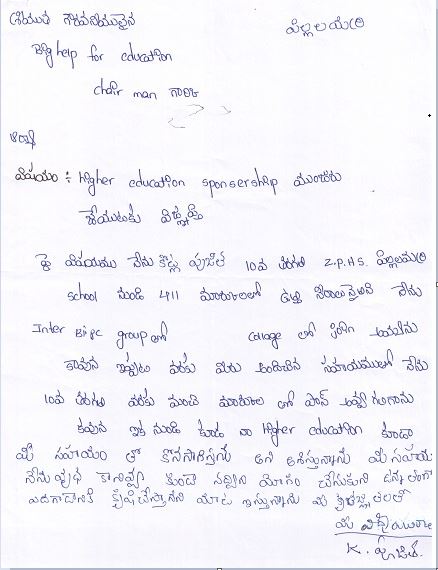 గౌరవనీయులైన పిల్లలమర్రి
Big help for education
chair man గారికి
ఆర్యా
విషయం :- higher education sponsership మంజూరు
చేయుటకు విజ్ఞప్తి
పై విషయము నేను కొట్ల పూజిత 10వ తరగతి Z.P.H.S. పిల్లలమర్రి
school నుండి 411 మార్కులలో నేను
Inter Bi.P.C group లో collage లో అయ్యాను
కావున ఇప్పటి వరకు మీరు అందించిన సహాయములో నేను
10వ తరగతి వరకు మంచి మార్కుల తో పాస్ అవ్వ గలిగాను
కావున ఇక నుండి కూడ నా Higher education కూడా
మీ సహాయం తో కొనసాగిస్తారు అని ఆశిస్తున్నాను మీ సహాయం
నేను వృధా కానివ్వ కుండా చేసుకుని
ఎదగడానికి కృషిచేస్తానని మాట ఇస్తున్నాను మీ కృతజ్ఞతలతో
మీ
K. పూజిత.